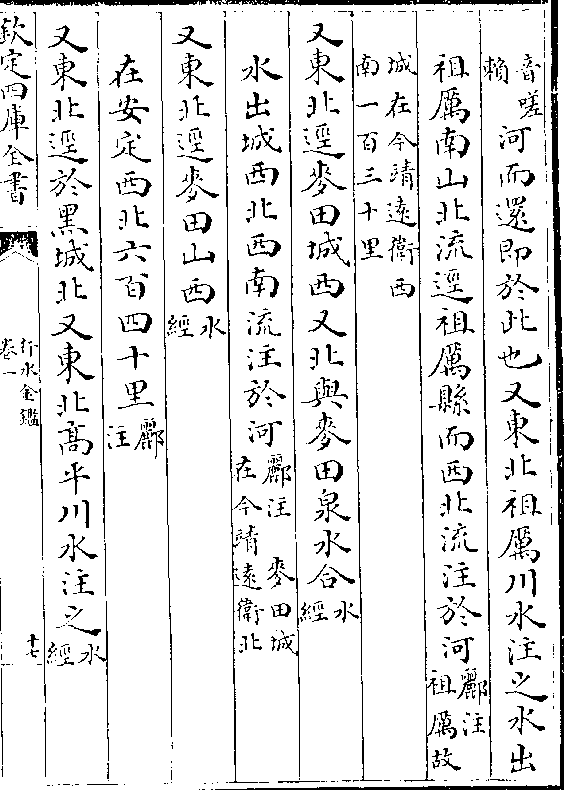 音嗟
賴
河而還即於此也又東北祖厲川水注之水出
祖厲南山北流逕祖厲縣而西北流注於河酈注
祖厲故
城在今靖遠衛西
南一百三十里
又東北逕麥田城西又北與麥田泉水合水經
水出城西北西南流注於河酈注　麥田城
在今靖遠衛北
又東北逕麥田山西水經
在安定西北六百四十里酈注
又東北逕於黑城北又東北髙平川水注之水經
欽定四庫全書
行水金鑑
卷一
十七